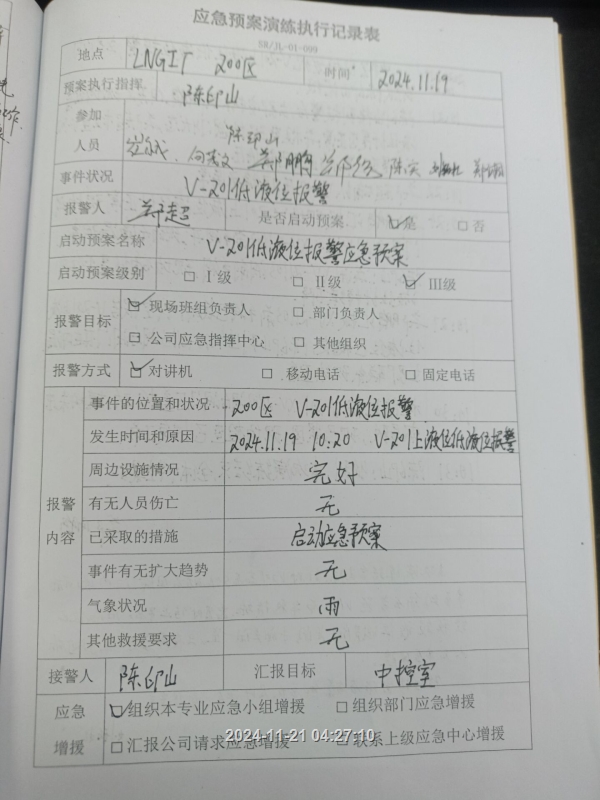 应急预案演练执行记录表
SR/JL-01-099
地点 LNGIT 200区 时间 2024.11.19
预案执行指挥 陈印山
参加人员 陈印山
郑鹏 陈
事件状况 V-201低液位报警
报警人 郑超 是否启动预案 ☑是 □否
启动预案名称 V-201低液位报警应急预案
启动预案级别 □Ⅰ级 □Ⅱ级 ☑Ⅲ级
报警目标 ☑现场班组负责人 □部门负责人
□公司应急指挥中心 □其他组织
报警方式 ☑对讲机 □移动电话 □固定电话
报警内容 事件的位置和状况 200区 V-201低液位报警
发生时间和原因 2024.11.19 10:20 V-201上液位低液位报警
周边设施情况 完好
有无人员伤亡 无
已采取的措施 启动应急预案
事件有无扩大趋势 无
气象状况 雨
其他救援要求 无
接警人 陈印山 汇报目标 中控室
应急增援 ☑组织本专业应急小组增援 □组织部门应急增援
□汇报公司请求应急增援 □联系上级应急中心增援
2024-11-21 04:27:10